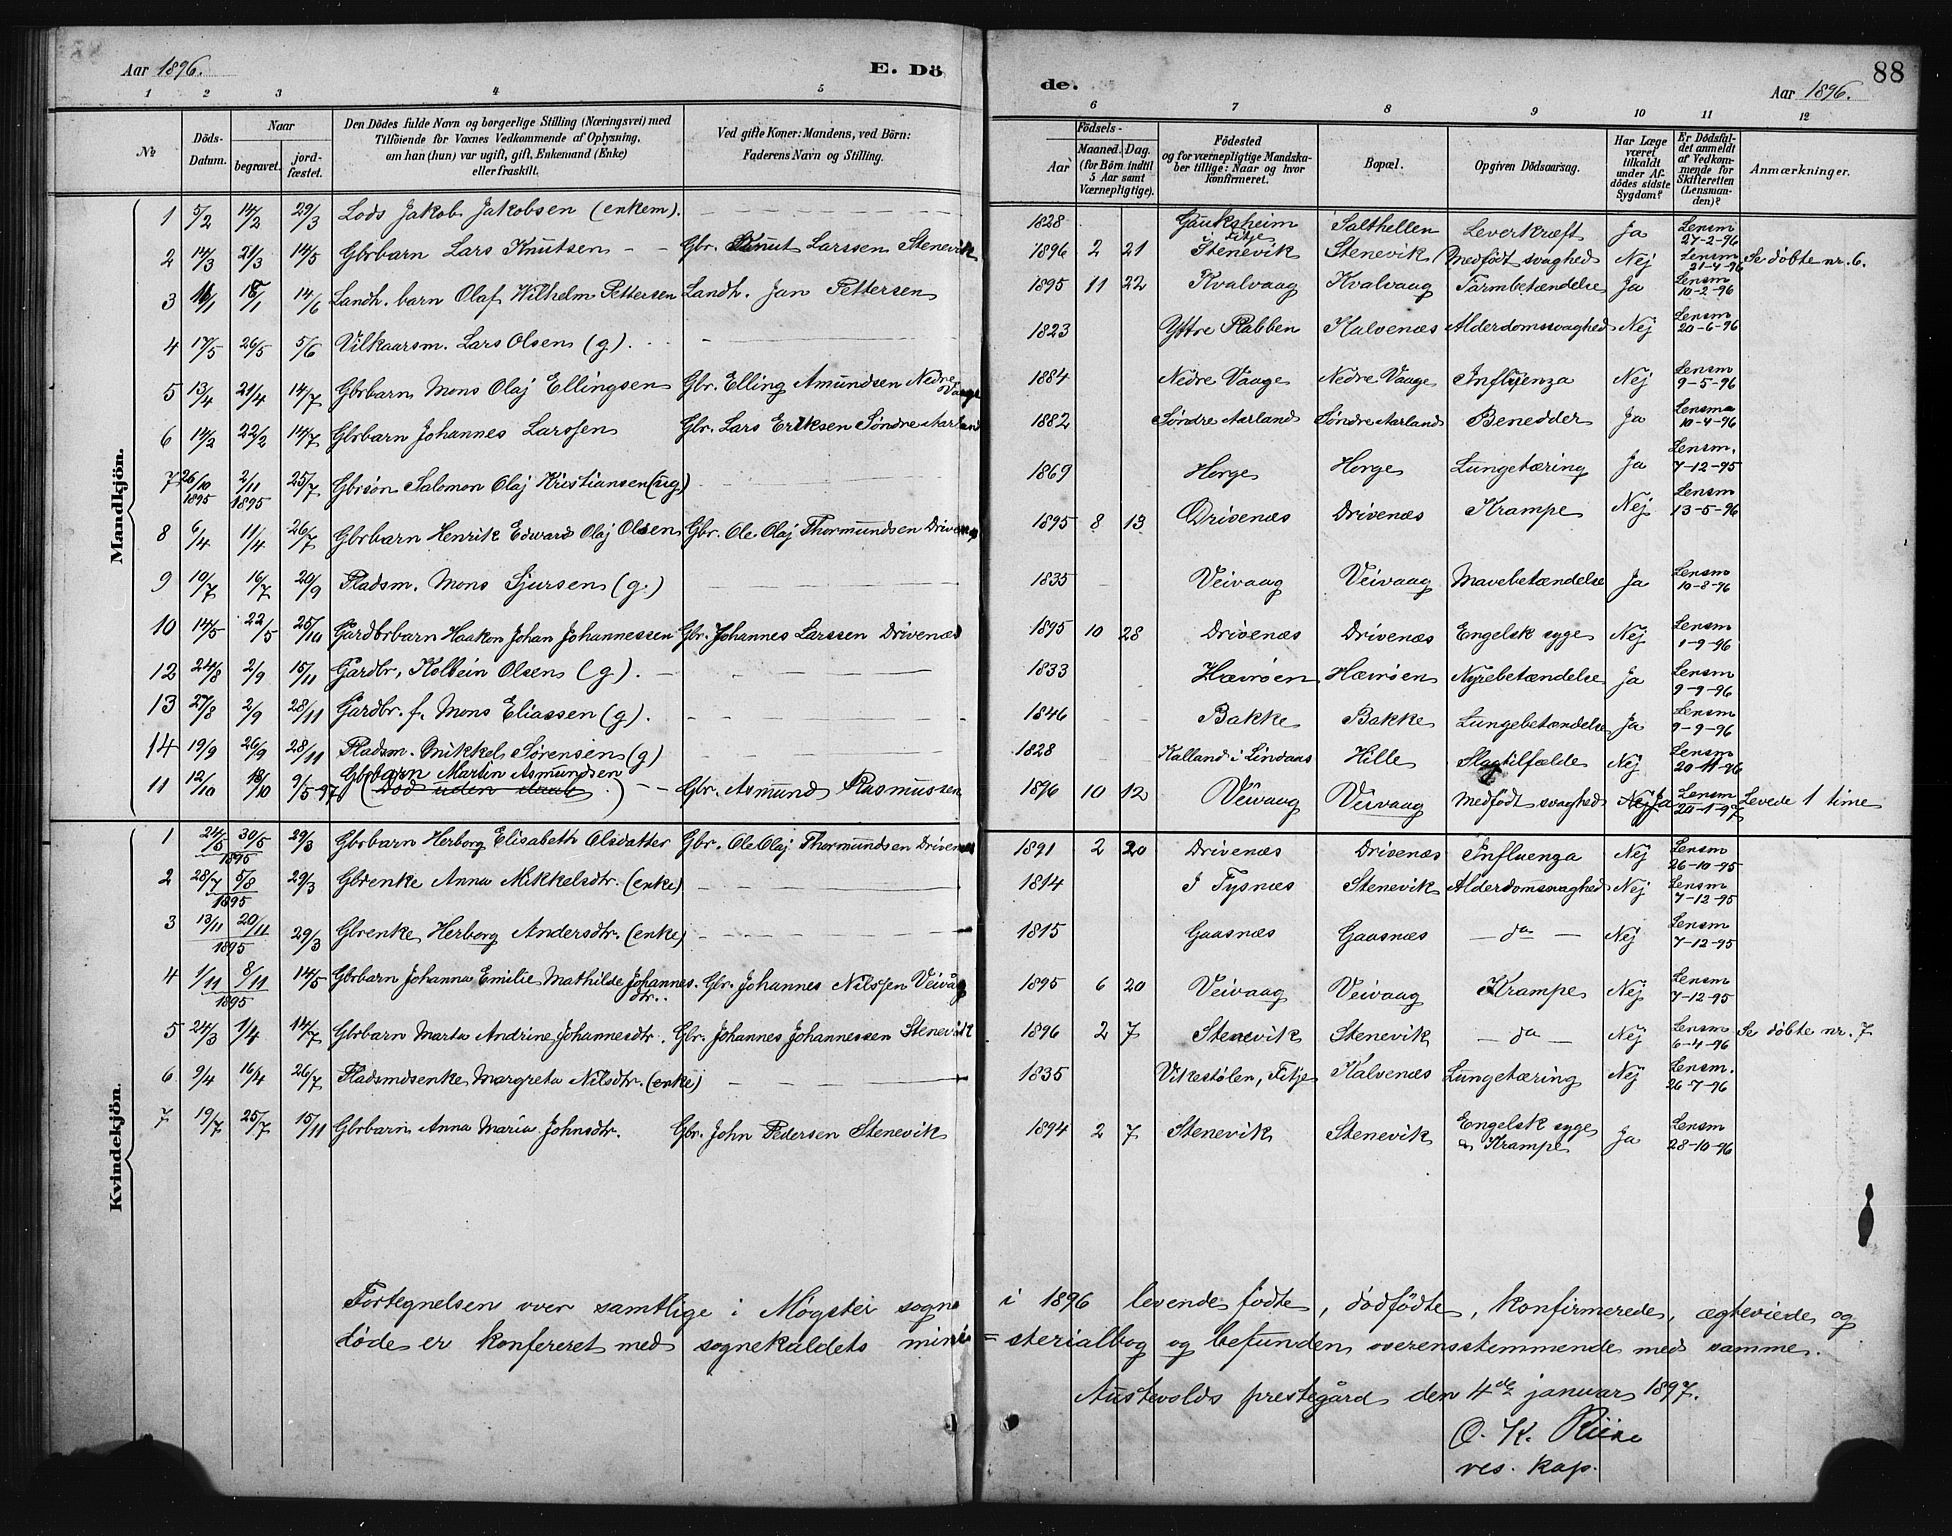 Aar 1896. E. Dö de. Aar 1896. 88
1 2 3 4 5 6 7 8 9 10 11 12
Mandkjön.
Kvindekjön.
№ Döds-Datum. Naar begravet. jordfæstet. Den Dödes fulde Navn og borgerlige Stilling (Næringsvei) med Tilföiende for Voxnes Vedkommende af Oplysning, om han (hun) var ugift, gift, Enkemand (Enke) eller fraskilt. Ved gifte Koner: Mandens, ved Börn: Faderens Navn og Stilling. Födsels- Aar Maaned. Dag. (for Börn indtil 5 Aar samt Værnepligtige). Födested og for værnepligtige Mandskaber tillige: Naar og hvor konfirmeret. Bopæl. Opgiven Dödsaarsag. Har Læge været tilkaldt under Afdödes sidste Sygdom? Er Dödsfaldet anmeldt af Vedkommende for Skifteretten (Lensmanden)? Anmærkninger.
1 5/2 14/2 29/3 Lods Jakob Jakobsen (enkem). 1828 Gauksheim Fitje Salthellen Leverkræft Ja Lensm 27-2-96
2 14/3 21/3 14/5 Gbrbarn Lars Knutsen Gbr. Knut Larssen Stenevik 1896 2 21 Stenevik Stenevik Medfødt svaghed Nej Lensm 21-4-96 Se døbte nr. 6.
3 11/1 18/1 14/6 Landh. barn Olaf Wilhelm Pettersen Landh. Jan Pettersen 1895 11 22 Kvalvaag Kvalvaag Tarmbetændelse Ja Lensm 10-2-96
4 17/5 26/5 5/6 Vilkaarsm. Lars Olsen (g). 1823 Yttre Rabben Kalvenæs Alderdomssvaghed Nej Lensm 20-6-96
5 13/4 21/4 14/7 Gbrbarn Mons Olaj Ellingsen Gbr. Elling Amundsen Nedre Vaage 1884 Nedre Vaage Nedre Vaage Influenza Nej Lensm 9-5-96
6 14/2 22/2 14/7 Gbrbarn Johannes Larssen Gbr. Lars Eriksen Søndre Aarland 1882 Søndre Aarland Søndre Aarland Benedder Ja Lensma 10-4-96
7 26/10 1895 2/11 1895 25/7 Gbrsøn Salomon Olaj Kristiansen (ug) 1869 Horge Horge Lungetæring Ja Lensm. 7-12-95
8 6/4 11/4 26/7 Gbrbarn Henrik Edward Olaj Olsen Gbr. Ole Olaj Thormundsen Drivenæs 1895 8 13 Drivenæs Drivenæs Krampe Nej Lensm 13-5-96
9 10/7 16/7 20/9 Pladsm. Mons Sjursen (g.) 1835 Veivaag Veivaag Mavebetændelse Ja Lensm 10-8-96
10 14/5 22/5 25/10 Gardbrbarn Haakon Johan Johannessen Gbr. Johannes Larssen Drivenæs 1895 10 28 Drivenæs Drivenæs Engelsk syge Nej Lensm 1-9-96
12 24/8 2/9 15/11 Gardbr. Kolbein Olsen (g). 1833 Hævrøen Hævrøen Nyrebetændelse Ja Lensm 9-9-96
13 27/8 2/9 28/11 Gardbr. f. Mons Eliassen (g). 1846 Bakke Bakke Lungebetændelse Ja Lensm 9-9-96
14 19/9 26/9 28/11 Pladsm. Mikkel Sørensen (g) 1828 Kalland i Lindaas Hille Slagtilfælde Nej Lensm 20-11-96
11 12/10 18/10 9/5-97 Gbrbarn Martin Asmundsen (Død uden daab) Gbr. Asmund Rasmussen 1896 10 12 Veivaag Veivaag Medfødt svaghed Nej Ja Lensm 20-1-97 Levede 1 time
1 24/5 30/5 1895 29/3 Gbrbarn Herborg Elisabeth Olsdatter Gbr. Ole Olaj Thormundsen Drivenæs 1891 2 20 Drivenæs Drivenæs Influenza Nej Lensm 26-10-95
2 28/7 5/8 1895 29/3 Gbrenke Anna Mikkelsdtr. (enke) 1814 I Tysnæs Stenevik Alderdomssvaghed Nej Lensm 7-12-95
3 13/11 20/11 1895 29/3 Gbrenke Herborg Andersdtr. (enke) 1815 Gaasnæs Gaasnæs — do — Nej Lensm 7-12-95
4 1/11 8/11 1895 14/5 Gbrbarn Johanna Emilie Mathilde Johannesdtr. Gbr. Johannes Nilssen Veivåg 1895 6 20 Veivaag Veivaag Krampe Nej Lensm 7-12-95
5 24/3 1/4 14/7 Gbrbarn Marta Andrine Johannesdtr. Gbr. Johannes Johannessen Stenevik 1896 2 7 Stenevik Stenevik — do — Nej Lensm 6-4-96 Se døbte nr. 7
6 9/4 16/4 26/7 Pladsmdsenke Margreta Nilsdtr. (enke) 1835 Vikestølen, Fitje Kalvenæs Lungetæring Nej Lensm. 26-7-96
7 19/7 25/7 15/11 Gbrbarn Anna Maria Johnsdtr. Gbr. John Pedersen Stenevik 1894 2 7 Stenevik Stenevik Engelsk syge & Krampe Ja Lensm 28-10-96
Fortegnelsen over samtlige i Møgster sogn i 1896 levende fødte, dødfødte, konfirmerede, ægteviede og
døde er konfereret med sognekaldets mini=sterialbog og befunden overensstemmende med samme.
Austevolds prestegård den 4de januar 1897.
O. K. Riise
res. kap.